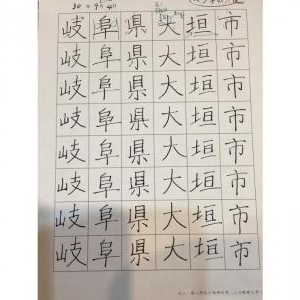 岐阜県大垣市
岐阜県大垣市
岐阜県大垣市
岐阜県大垣市
岐阜県大垣市
岐阜県大垣市
岐阜県大垣市
岐阜県大垣市